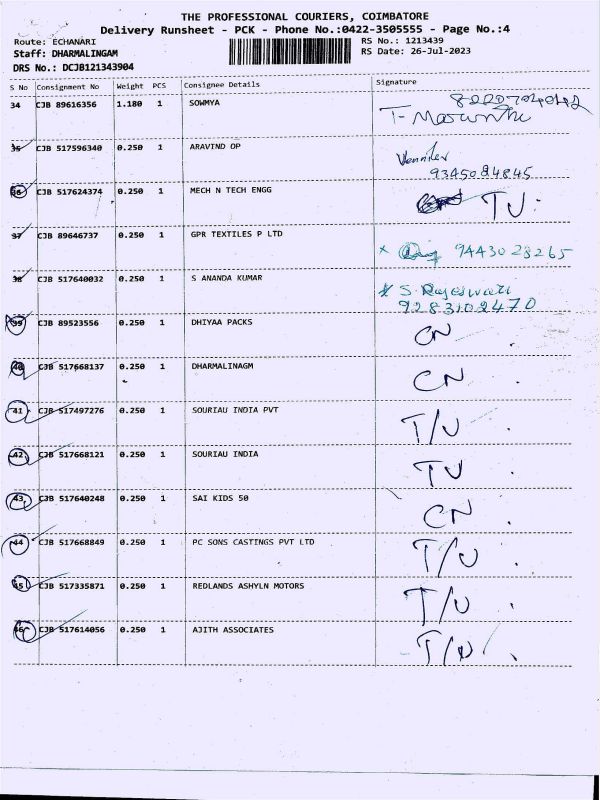 THE PROFESSIONAL COURIERS, COIMBATORE
Delivery Runsheet - PCK - Phone No.:0422-3505555 - Page No.:4
Route: ECHANARI
RS No.: 1213439
Staff: DHARMALINGAM
RS Date: 26-Jul-2023
DRS No.: DCJB121343904
S No Consignment No Weight PCS Consignee Details Signature
34 CJB 89616356 1.180 1 SOWMYA
35 CJB 517596340 0.250 1 ARAVIND OP
9345084845
36 CJB 517624374 0.250 1 MECH N TECH ENGG TU
37 CJB 89646737 0.250 1 GPR TEXTILES P LTD
9443023265
38 CJB 517640032 0.250 1 S ANANDA KUMAR S. Rajeswari
9283102470
39 CJB 89523556 0.250 1 DHIYAA PACKS CN
40 CJB 517668137 0.250 1 DHARMALINAGM CN
41 CJB 517497276 0.250 1 SOURIAU INDIA PVT T/U
42 CJB 517668121 0.250 1 SOURIAU INDIA TU
43 CJB 517640248 0.250 1 SAI KIDS 50 CN
44 CJB 517668849 0.250 1 PC SONS CASTINGS PVT LTD T/U
45 CJB 517335871 0.250 1 REDLANDS ASHYLN MOTORS T/U
46 CJB 517614056 0.250 1 AJITH ASSOCIATES T/U